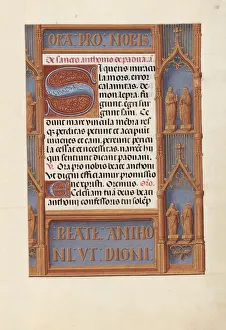 ORA PRO NOBE
De sancto anthonio de padua. a
Si queris miracu
la mors, error
calamitas, de
mon lepra fu
giunt egri sur
gunt sani. Ce
dunt mare vincula membra res
qs perditas petunt et accipiunt
iuuenes et cani. Pereunt pericula
cessat et necessitas, narrent hi
qui sentiunt dicant paduani.
V. Ora pro nobis beate anthoni
Ut digni efficiamur promissio
nibus xpisti. Oremus. Oro
Ecclesiam tua deus beati
anthonii confessoris tui
BEATE ANTHO
NI VT DIGNI